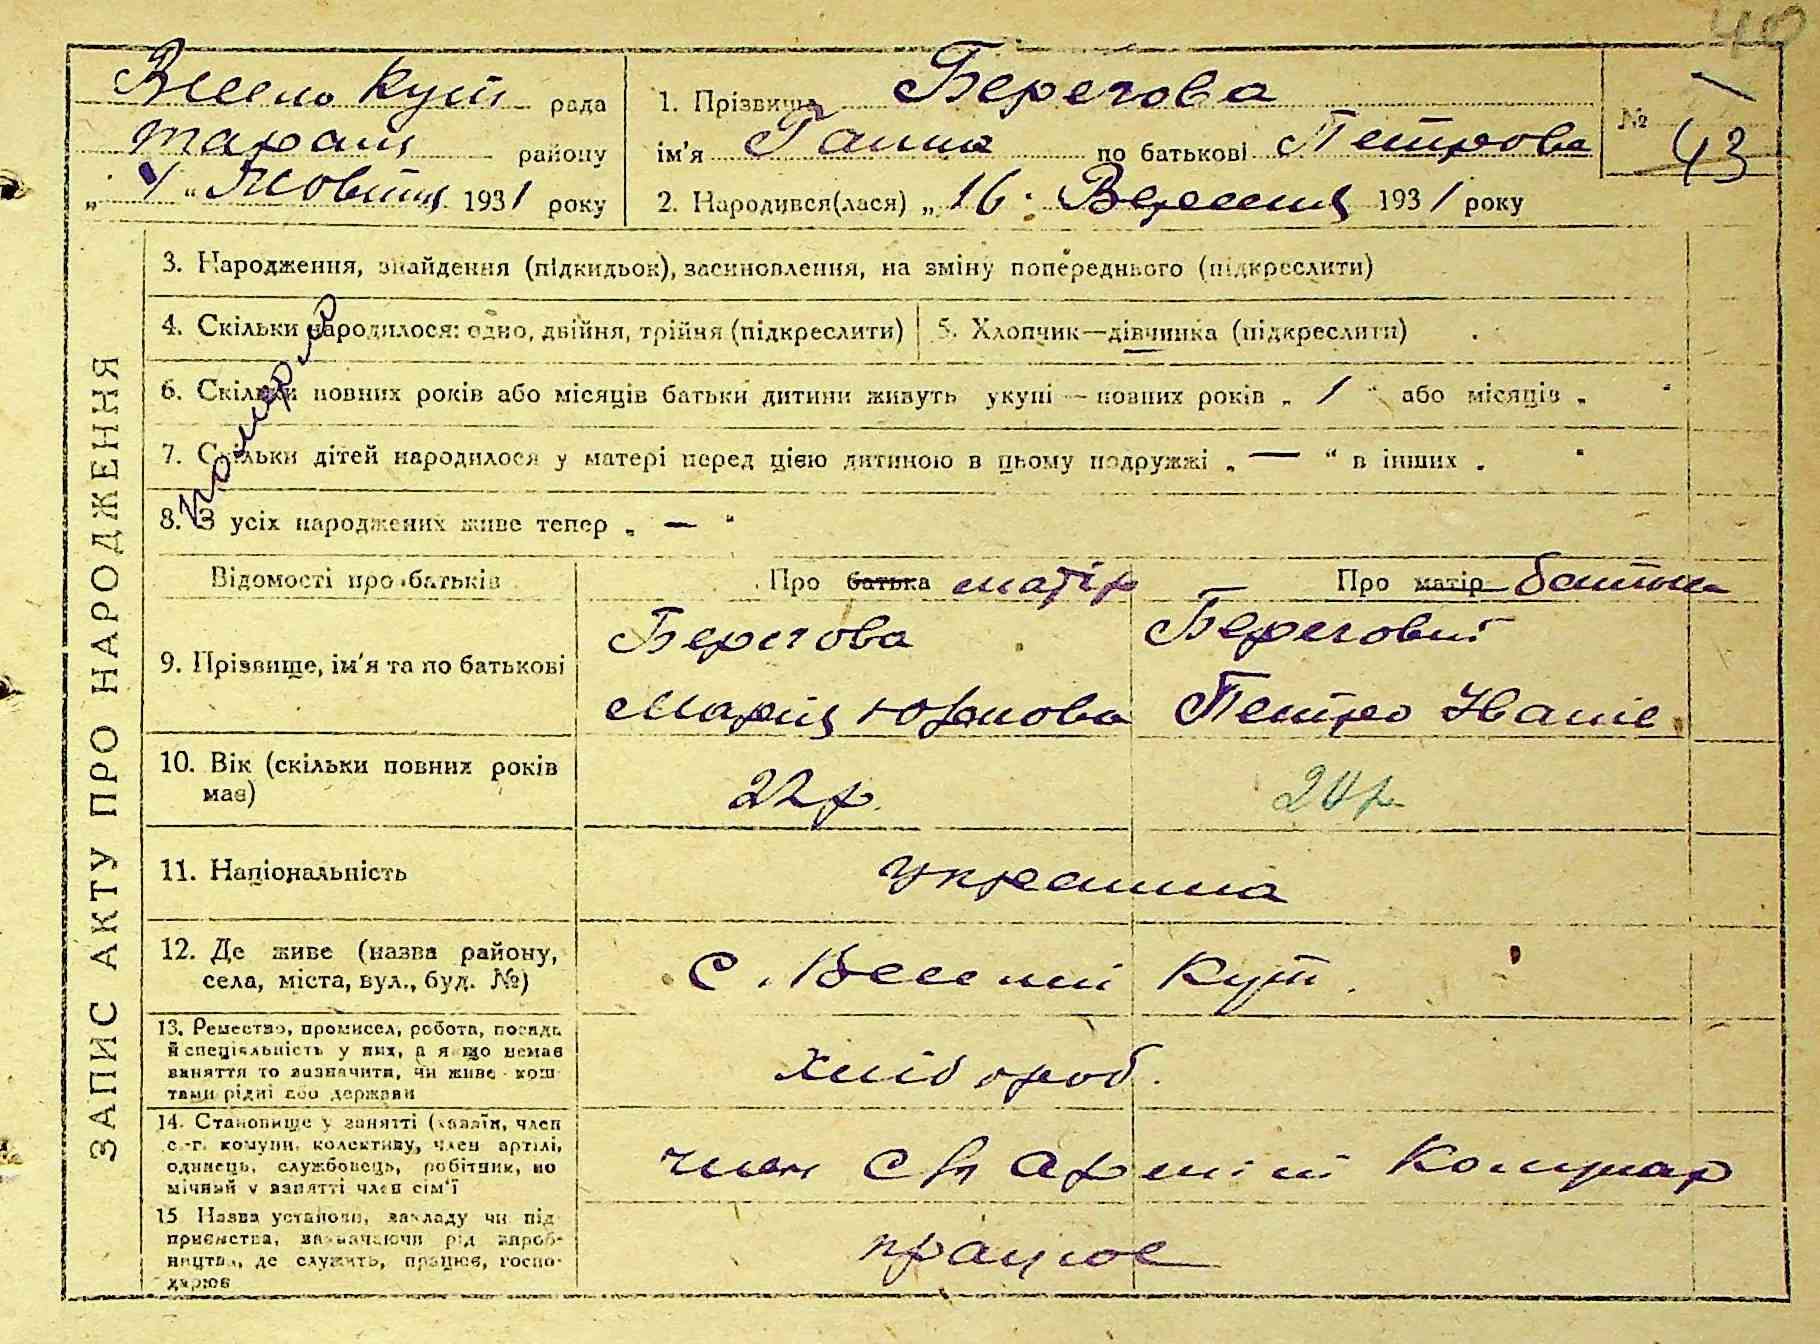 40
Весело Кут рада
Таращ району
„ 4 “ Жовтня 1931 року
1. Прізвище Берегова
ім'я Ганна по батькові Петрова
2. Народився(лася) „ 16 Вересня 1931 року
№ 43
ЗАПИС АКТУ ПРО НАРОДЖЕННЯ
3. Народження, знайдення (підкидьок), засиновлення, на зміну попереднього (підкреслити)
4. Скільки народилося: одно, двійня, трійня (підкреслити)
5. Хлопчик—дівчинка (підкреслити)
6. Скільки повних років або місяців батьки дитини живуть укупі — повних років „ 1 “ або місяців „ “
7. Скільки дітей народилося у матері перед цією дитиною в цьому подружжі „ — “ в інших „ “
8. З усіх народжених живе тепер „ — “
померла
Відомості про батьків
Про батька матір
Про матір батька
9. Прізвище, ім'я та по батькові
Берегова
Марія Юхимова
Береговий
Петро Іванів
10. Вік (скільки повних років
має)
22 р.
24 р.
11. Національність
українка
12. Де живе (назва району,
села, міста, вул., буд. №)
с. Веселий Кут.
13. Ремество, промисел, робота, посада
й спеціяльність у них, а якщо немає
заняття то визначити, чи живе кош-
тами рідні або держави
Хлібороб.
14. Становище у занятті (хазяїн, член
с.-г. комуни, колективу, член артілі,
одинець, службовець, робітник, по
мічный у занятті член сім'ї
член с г артілі Комунар
15 Назва установи, закладу чи під-
приємства, зазначаючи рід вироб-
ництва, де служить, працює, госпо-
дарює
працює